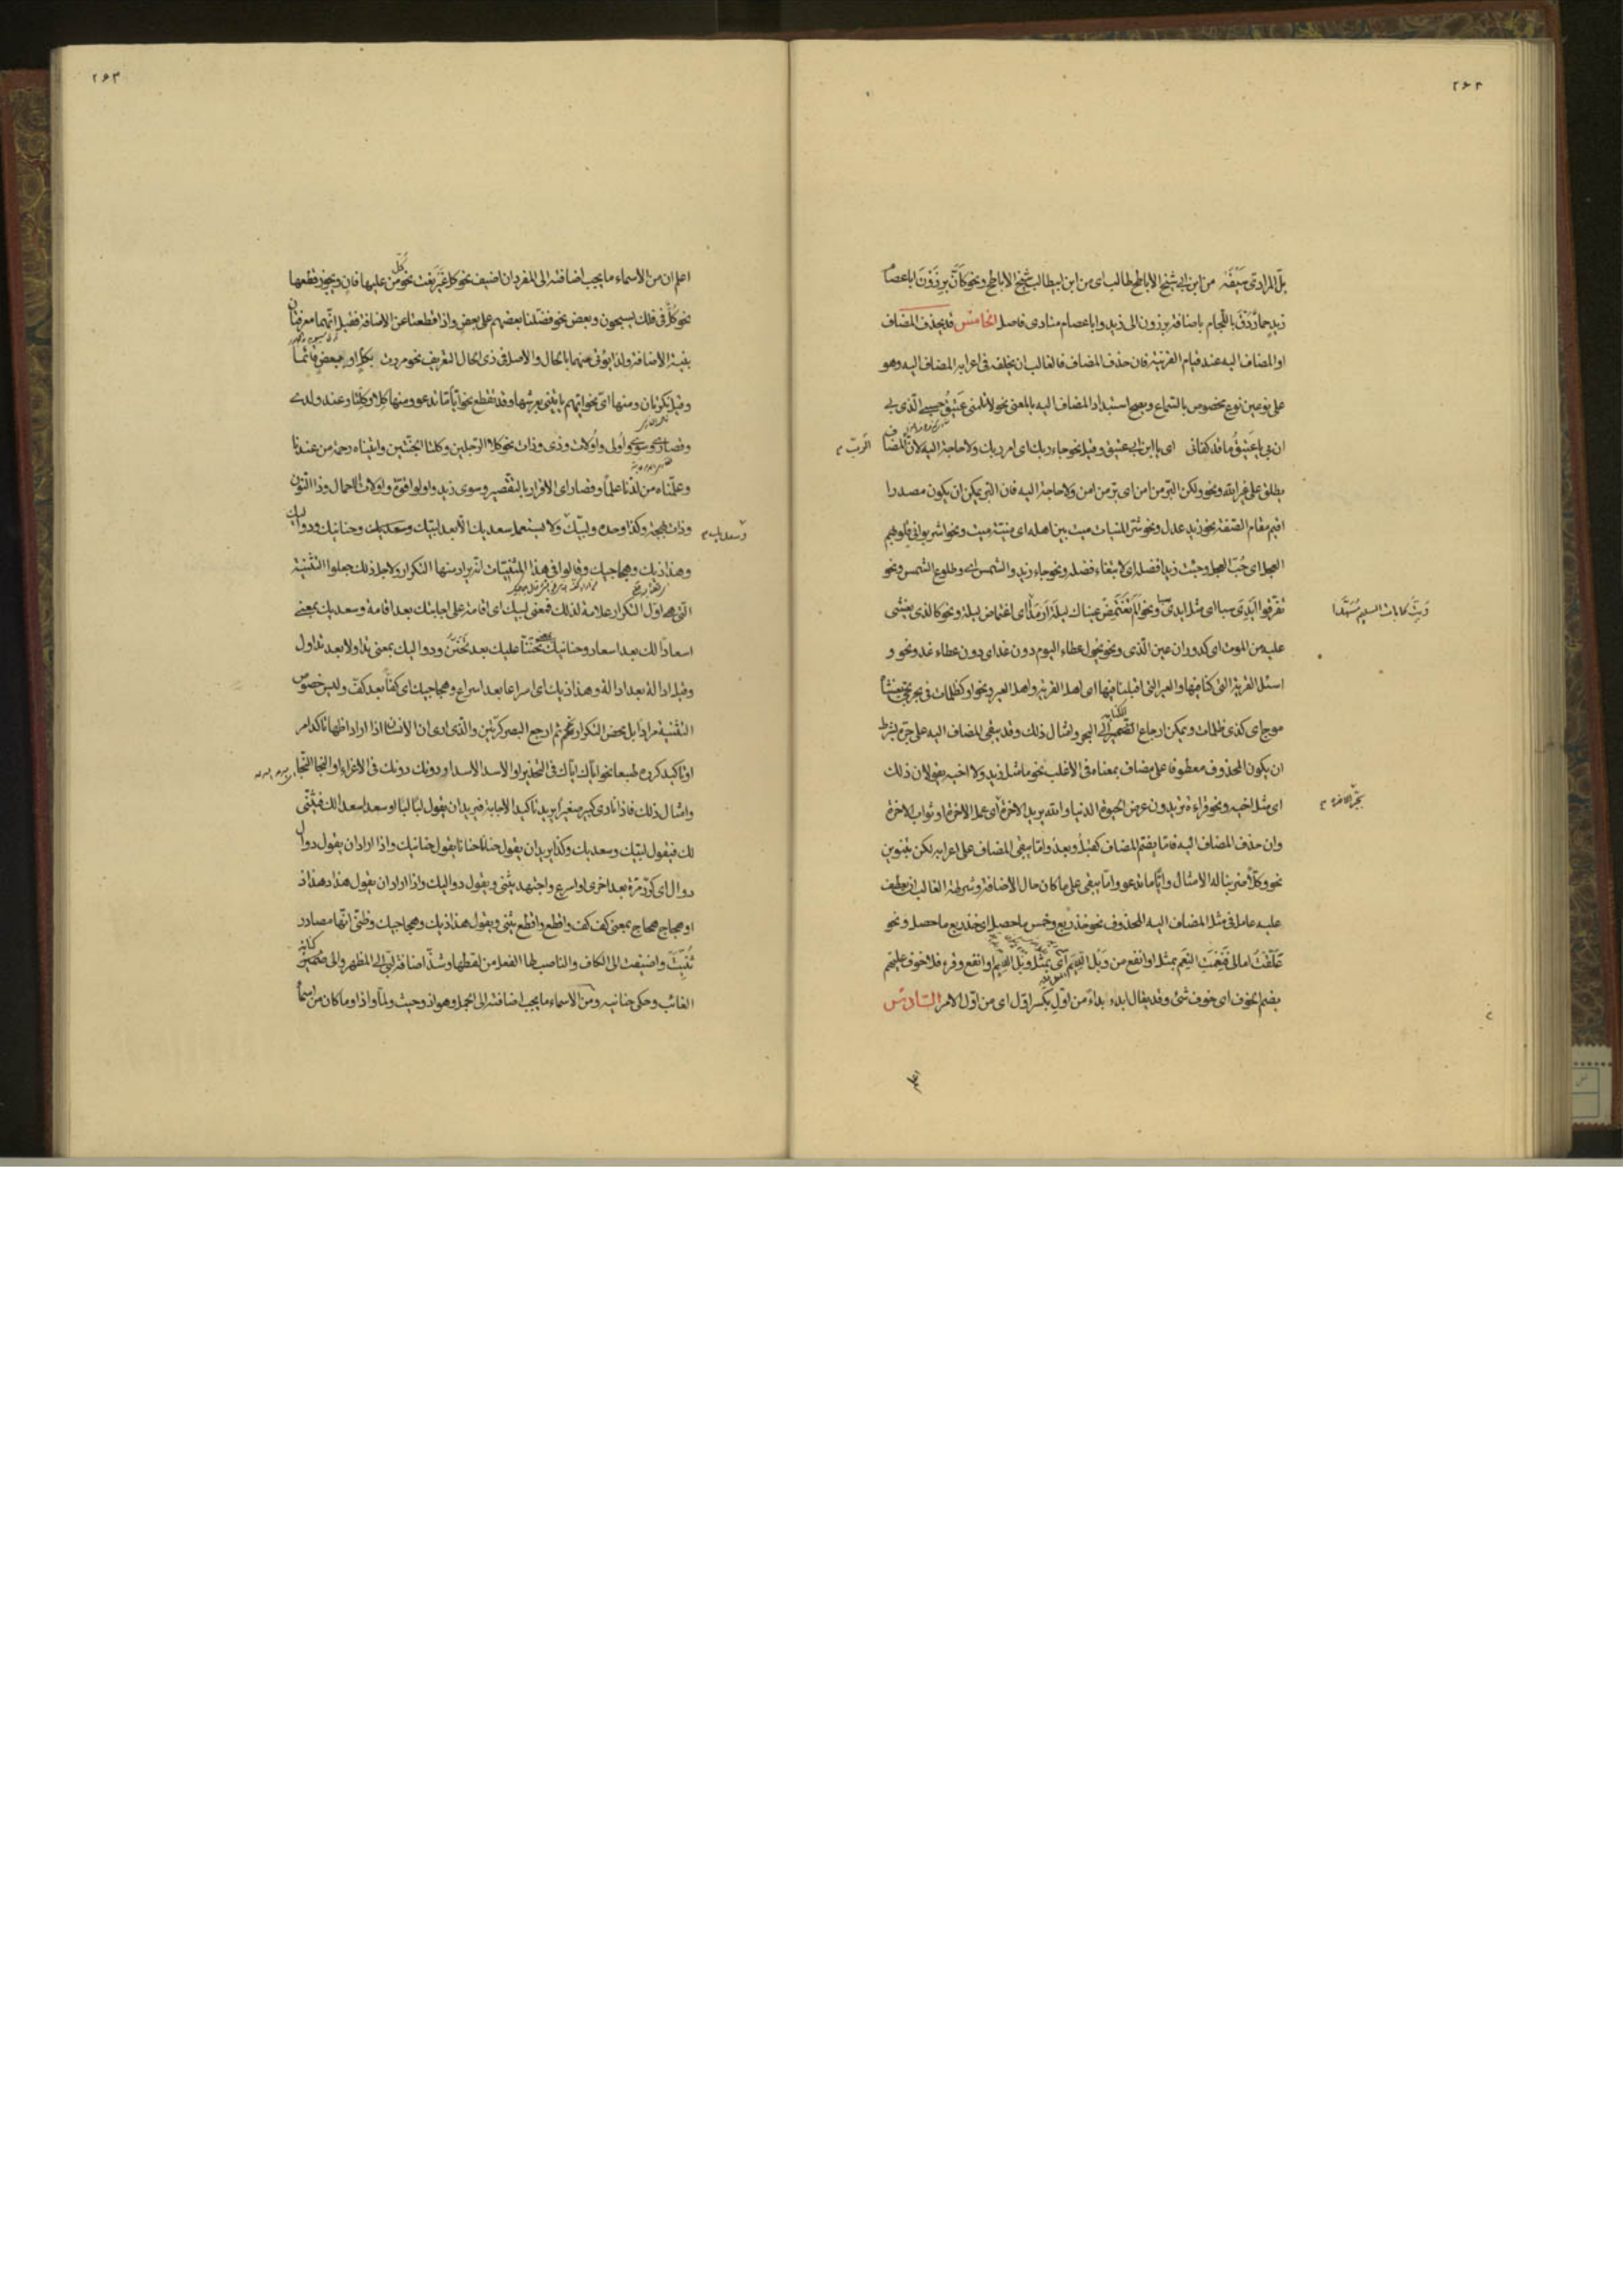 ٢٦٢
بلّ المرادىّ سَيْفَه من ابن ابى شيخ الاباطح طالب اى من ابن ابيطالب شيخ الاباطح ونحو كَأَنَّ بِرذَوْنَ ابا عصام
زيدٍ حمارٌ دُقَّ باللّجام باضافة برذون الى زيد وابا عصام منادى فاصل الخامس قد يحذف المضاف
او المضاف اليه عند قيام القرينة فان حذف المضاف فالغالب ان يخلفه فى اعرابه المضاف اليه وهو
على نوعين نوع مخصوص بالسّماع ويصح استبداد المضاف اليه بالمعنى نحو لا تلمنى عَتيقُ حسبى الّذى بى
انّ بى يا عتيقُ ما قد كفانى اى يا ابن ابى عتيق وقيل نحو جاء ربك اى امر ربك ولا حاجة اليه لانّ المضاف
الرّب
يطلق على غير الله ونحو ولكن البرّ من امن اى برّ من امن ولا حاجة اليه فان البرّ يمكن ان يكون مصدرا
اقيم مقام الصّفة نحو زيد عدل ونحو شرّ المنيات ميت بين اهله اى منيّة ميت ونحو اشربوا فى قلوبهم
العجل اى حُبّ العجل وجئت زيدا فضله اى لابتغاء فضله ونحو جاء زيد والشمس اى وطلوع الشمس ونحو
تفرقوا ايدى سبا اى مثل ايدى سبا ونحو الم تغتمض عيناك ليلة ارمدا اى اغتماض ليلة ونحو كالذى يغشى
وَبِتَّ كما بات السليم مُسَهّدا
عليه من الموت اى كدوران عين الّذى ونحو نحول عطاء اليوم دون غد اى دون عطاء غد ونحو و
اسئل القرية التى كنا فيها والعير التى اقبلنا فيها اى اهل القرية واهل العير ونحو او كظلمات فى بحر لجّى يغشاه
موج اى كذى ظلمات ويمكن ارجاع الضّمير الى البحر وامثال ذلك وقد يبقى المضاف اليه على جرّه بشرط
ان يكون المحذوف معطوفا على مضاف بمعناه فى الاغلب نحو ما مثل زيد ولا اخيه يقولان ذلك
اى مثل اخيه ونحو قراءة تريدون عرض الحيوة الدنيا والله يريد الاخرة اى عمل الاخرة او ثواب الاخرة
بجرّ الاخرة
وان حذف المضاف اليه فامّا يضمّ المضاف كقبلُ وبعدُ وامّا يبقى المضاف على اعرابه لكن بتنوين
نحو وكلّا ضربنا له الامثال وايّا ما تدعو وامّا يبقى على ما كان حال الاضافة وشرطه الغالب ان يعطف
عليه عامل فى مثل المضاف اليه المحذوف نحو خذ ربع وخمس ما حصل اى خذ ربع ما حصل ونحو
عَلّقْتُ امالى فَعَمَّتِ النِعَم بمثل او انفع من وَبْل الدِّيَم اى بمثل وبل الديم او انفع وقرء فلا خوف عليهم
بضم الخوف اى خوف شئ وقد يقال ابدء بداء من اوّلِ بكسر اوّل اى من اوّل الامر السّادس
٢٦٣
اعلم ان من الاسماء ما يجب اضافته الى المفرد ان اضيف نحو كلّ غير نعت نحو كلّ من عليها فان ويجوز قطعها
نحو كلٌّ فى فلك يسبحون وبعض نحو فضلنا بعضهم على بعض واذا قطعتا عن الاضافة فقيل انّهما معرفتان
بنيّة الاضافة ولذا يؤتى منهما بالحال والاصل فى ذى الحال التعريف نحو مررت بكلّ او ببعض قائما
وقيل نكرتان ومنها اى نحو ايّهم يأتينى بعرشها وقد تقطع نحو ايّا ما تدعو ومنها كلا وكلتا وعند ولدى
وقصارى وسوى واولى واولات وذى وذات نحو كلا الرّجلين وكلتا الجنّتين واتيناه رحمة من عندنا
وعلّمناه من لدنّا علما وقصارى الاقرار بالتقصير وسوى زيد واولوا قوّة واولات الاحمال وذا النون
وذات بهجة وكذا وحده ولبيّك ولا يستعمل سعديك الّا بعد لبّيك وسعديك وحنانيك ودواليك
وسعديك
وهذاذيك وهجاجيك وقالوا فى هذا المثنيّات انّه يراد منها التكرار ولاجل ذلك جعلوا التّثنية
الّتى هى اوّل التكرار علامة لذلك فمعنى لبيك اى اقامة على اجابتك بعد اقامة وسعديك بمعنى
اسعادا لك بعد اسعاد وحنانيك تحنّنا عليك بعد تحنّن ودواليك بمعنى تداولا بعد تداول
وقيل ادالة بعد ادالة وهذاذيك اى اسراعا بعد اسراع وهجاجيك اى كفّا بعد كفّ وليس خصوص
التّثنية مرادا بل محض التكرار نحو ثم ارجع البصر كرّتين والّذى ارى ان الانسان اذا اراد اظهار تاكد امر
او تاكيد كرّره طبعا نحو ايّاك ايّاك فى التّحذير او الاسد الاسد او دونك دونك فى الاغراء او النجا النجا
وامثال ذلك فاذا نادى كبير صغيرا يريد تاكيد الاجابة فيريد ان يقول لبّا لبّا او سعدا سعدا لك فيثنّى
لك فيقول لبّيك وسعديك وكذا يريد ان يقول حنانا حنانا يقول حنانيك واذا اراد ان يقول دوال
دوال اى كرّة مرّة بعد اخرى او اسرع واجتهد يثنى ويقول دواليك واذا اراد ان يقول هذاذ هذاذ
او هجاج هجاج بمعنى كف كف واقطع واقطع يثنى ويقول هذاذيك وهجاجيك وظنّى انّها مصادر
ثُنِّيَتْ واضيفت الى الكاف والناصب لها الفعل من لفظها وشذّ اضافة لبّى الى المظهر والى ضمير
الغائب وحكى حنانيه ومن الاسماء ما يجب اضافته الى الجمل وهو اذ وحيث ولمّا واذا وما كان من اسماء